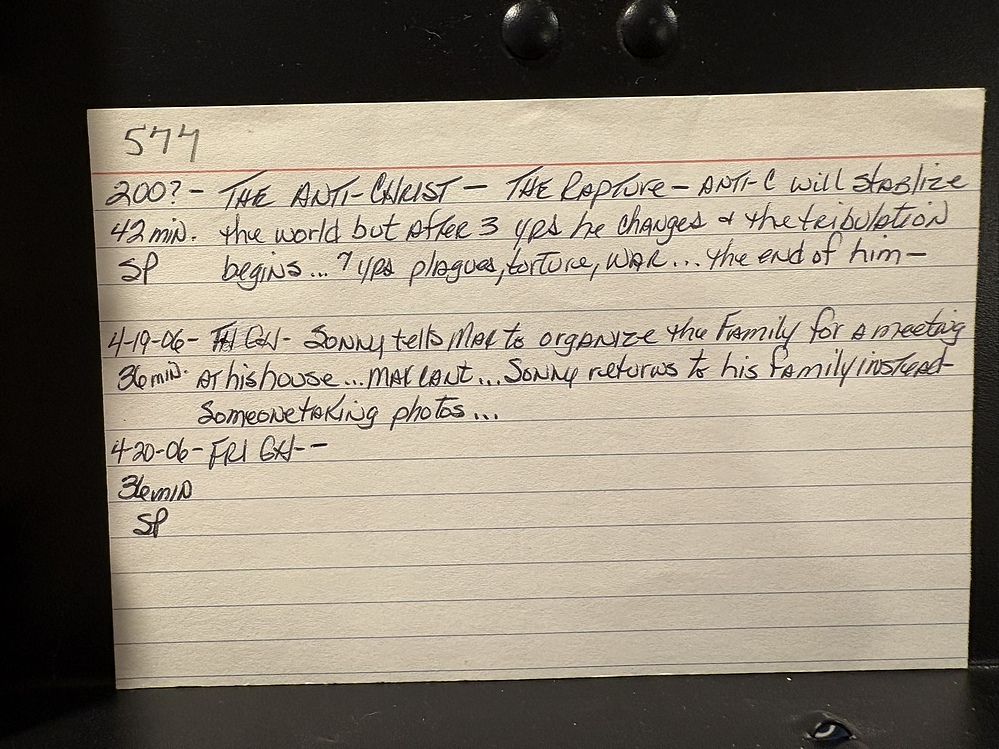 577
200? - THE ANTI-CHRIST - THE RAPTURE - ANTI-C will stablize
42 min. the world but after 3 yrs he changes & the tribulation
SP begins... 7 yrs plagues, torture, war... the end of him -
4-19-06 - TH GH - Sonny tells Max to organize the Family for a meeting
36 min. at his house... Max can't... Sonny returns to his family instead -
Someone taking photos...
4-20-06 - FRI GH - -
36 min
SP